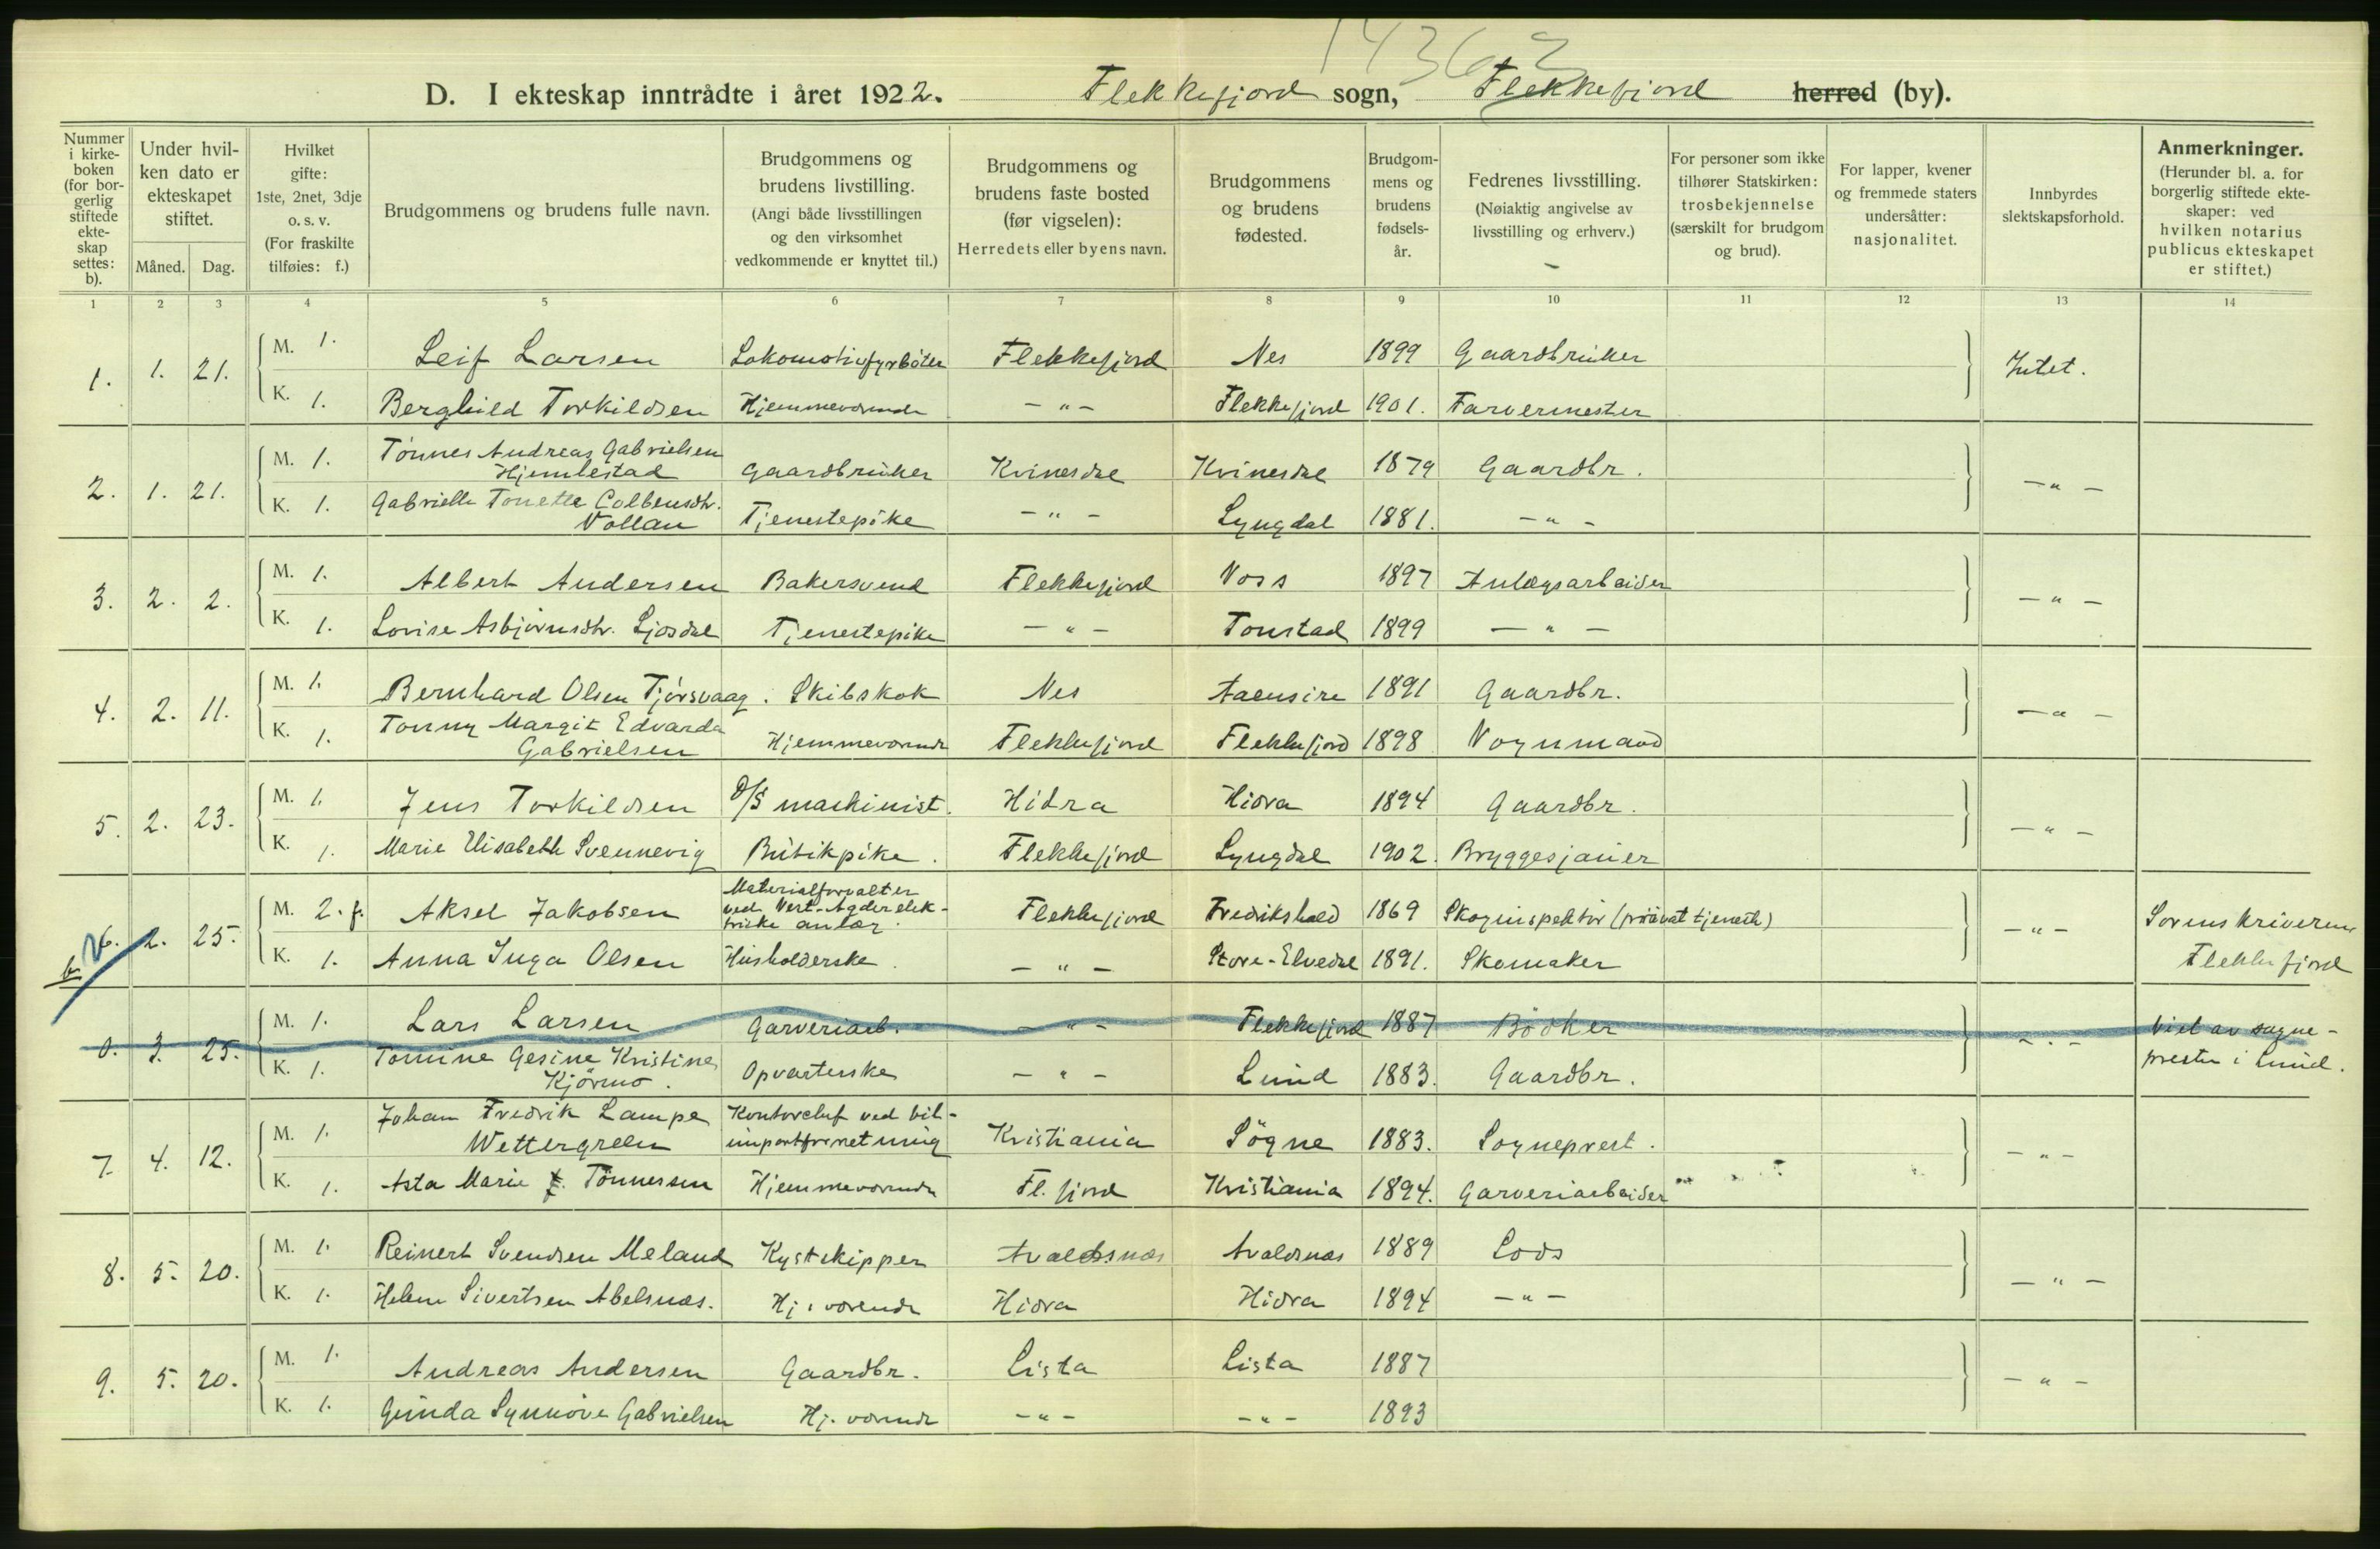 14363
D. I ekteskap inntrådte i året 1922. Flekkefjord sogn, Flekkefjord herred (by).
Nummer i kirkeboken (for borgerlig stiftede ekteskap settes: b).
Under hvilken dato er ekteskapet stiftet.
Måned. Dag.
Hvilket gifte: 1ste, 2net, 3dje o. s. v. (For fraskilte tilføies: f.)
Brudgommens og brudens fulle navn.
Brudgommens og brudens livstilling. (Angi både livsstillingen og den virksomhet vedkommende er knyttet til.)
Brudgommens og brudens faste bosted (før vigselen): Herredets eller byens navn.
Brudgommens og brudens fødested.
Brudgommens og brudens fødselsår.
Fedrenes livsstilling. (Nøiaktig angivelse av livsstilling og erhverv.)
For personer som ikke tilhører Statskirken: trosbekjennelse (særskilt for brudgom og brud).
For lapper, kvener og fremmede staters undersåtter: nasjonalitet.
Innbyrdes slektskapsforhold.
Anmerkninger. (Herunder bl. a. for borgerlig stiftede ekteskaper: ved hvilken notarius publicus ekteskapet er stiftet.)
1 2 3 4 5 6 7 8 9 10 11 12 13 14
1. 1. 21. M. 1. Leif Larsen Lokomotivfyrböter Flekkefjord Nes 1899 Gaardbruker Intet.
K. 1. Berghild Torkildsen Hjemmeværende — " — Flekkefjord 1901. Farvermester
2. 1. 21. M. 1. Tönnes Andreas Gabrielsen
Hjemlestad Gaardbruker Kvinesdal Kvinesdal 1879 Gaardbr. — " —
K. 1. Gabrielle Tonette Colbensdtr.
Vollan Tjenestepike — " — Lyngdal 1881. — " —
3. 2. 2. M. 1. Albert Andersen Bakersvend Flekkefjord Voss 1897 Anlægsarbeider — " —
K. 1. Lovise Asbjörnsdtr. Ljosdal Tjenestepike — " — Tonstad 1899 — " —
4. 2. 11. M. 1. Bernhard Olsen Tjörsvaag. Skibskok Nes Aaensire 1891 Gaardbr. — " —
K. 1. Tonny Margit Edvarda
Gabrielsen Hjemmeværende Flekkefjord Flekkefjord 1898 Vognmand
5. 2. 23. M. 1. Jens Torkildsen D/S machinist. Hidra Hidra 1894 Gaardbr. — " —
K. 1. Marie Elisabeth Svennevig Butikpike. Flekkefjord Lyngdal 1902. Bryggesjauer
b 6. 2. 25. M. 2. f. Aksel Jakobsen Materialforvalter
ved Vest-Agder elek-
triske anlæg. Flekkefjord Fredrikshald 1869 Skoginspektör (privat tjeneste) — " — Sorenskriveren
Flekkefjord
K. 1. Anna Inga Olsen Husholderske. — " — Store-Elvedal 1891. Skomaker
0. 3. 25. M. 1. Lars Larsen Garveriarb. — " — Flekkefjord 1887 Bödker — " — Viet av sogne-
presten i Lund.
K. 1. Tomine Gesine Kristine
Kjörmo. Opvarterske — " — Lund 1883. Gaardbr.
7. 4. 12. M. 1. Johan Fredrik Lampe
Wettergreen Kontorchef ved bil-
importforretning Kristiania Sögne 1883. Sogneprest. — " —
K. 1. Asta Marie Tönnessen Hjemmeværende Fl. fjord Kristiania 1894. Garveriarbeider
8. 5. 20. M. 1. Reinert Svendsen Meland Kystskipper Avaldsnæs Avaldsnæs 1889 Lods — " —
K. 1. Helene Sivertsen Abelsnæs. Hj. værende Hidra Hidra 1894 — " —
9. 5. 20. M. 1. Andreas Andersen Gaardbr. Lista Lista 1887 — " —
K. 1. Gunda Synnöve Gabrielsen Hj. værende — " — — " — 1893